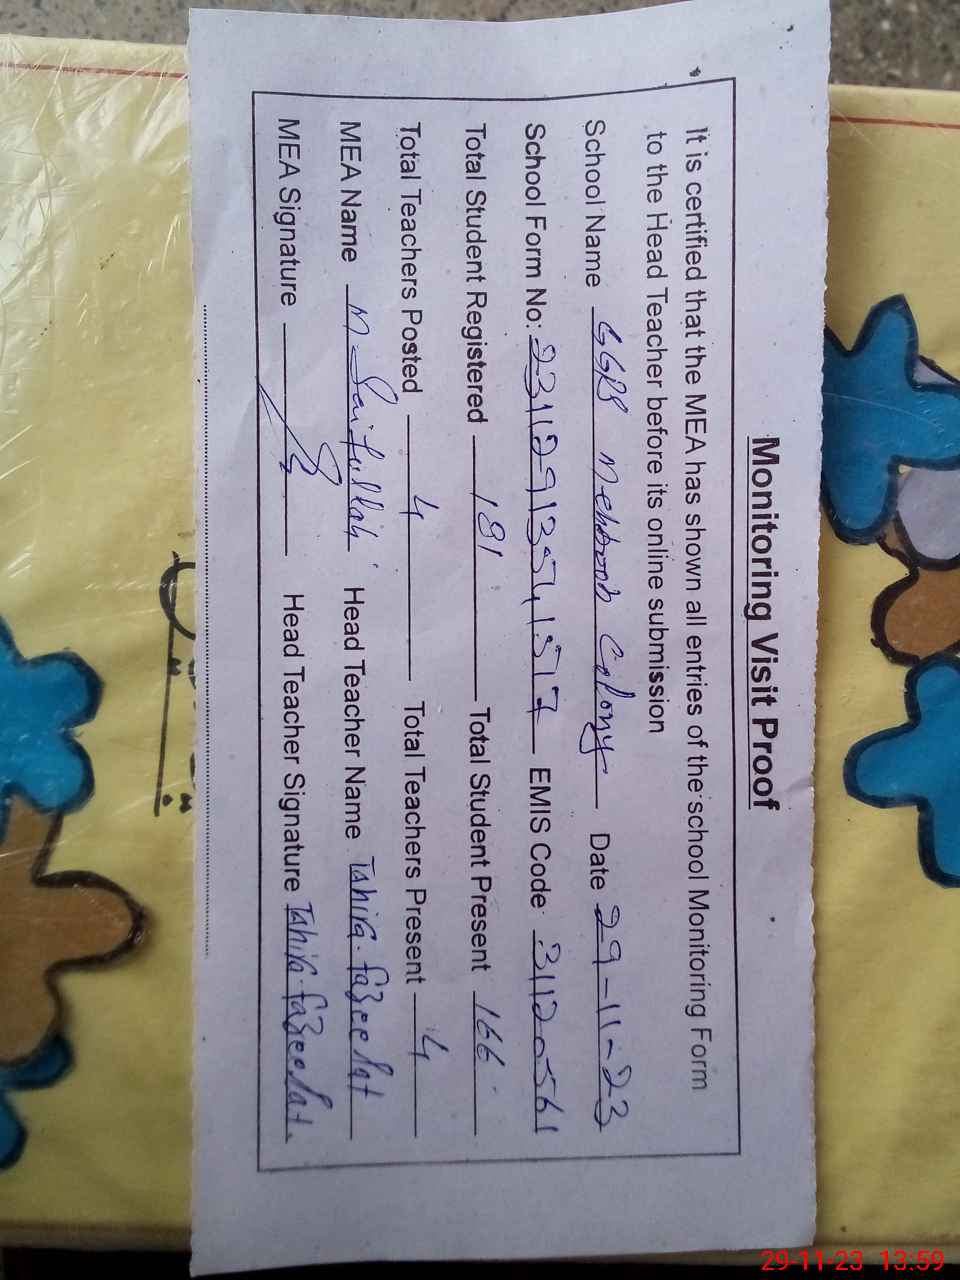 Monitoring Visit Proof
It is certified that the MEA has shown all entries of the school Monitoring Form
to the Head Teacher before its online submission
School Name GGPS Mehboob Colony Date 29-11-23
School Form No: EMIS Code 31120561
Total Student Registered 181 Total Student Present 166
Total Teachers Posted 4 Total Teachers Present 4
MEA Name M Saifullah Head Teacher Name Tahira fazeelat
MEA Signature Head Teacher Signature Tahira fazeelat.
29-11-23 13:59